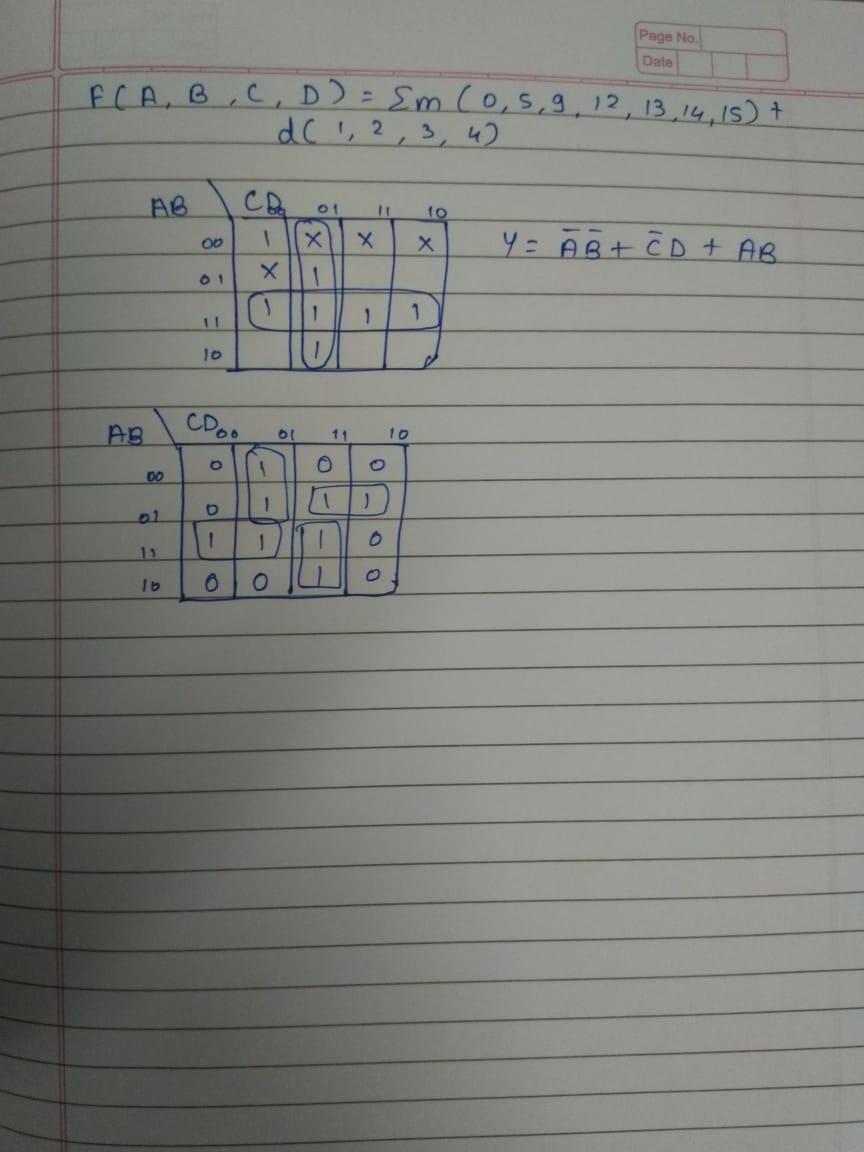 Page No.
Date
F(A, B, C, D) = Σm (0, 5, 9, 12, 13, 14, 15) +
d( 1, 2, 3, 4)
AB \ CD 01 11 10
00 1 X X X Y = A̅B̅ + C̅D + AB
01 X 1
11 1 1 1 1
10 1
AB \ CD 00 01 11 10
00 0 1 0 0
01 0 1 1 1
11 1 1 1 0
10 0 0 1 0